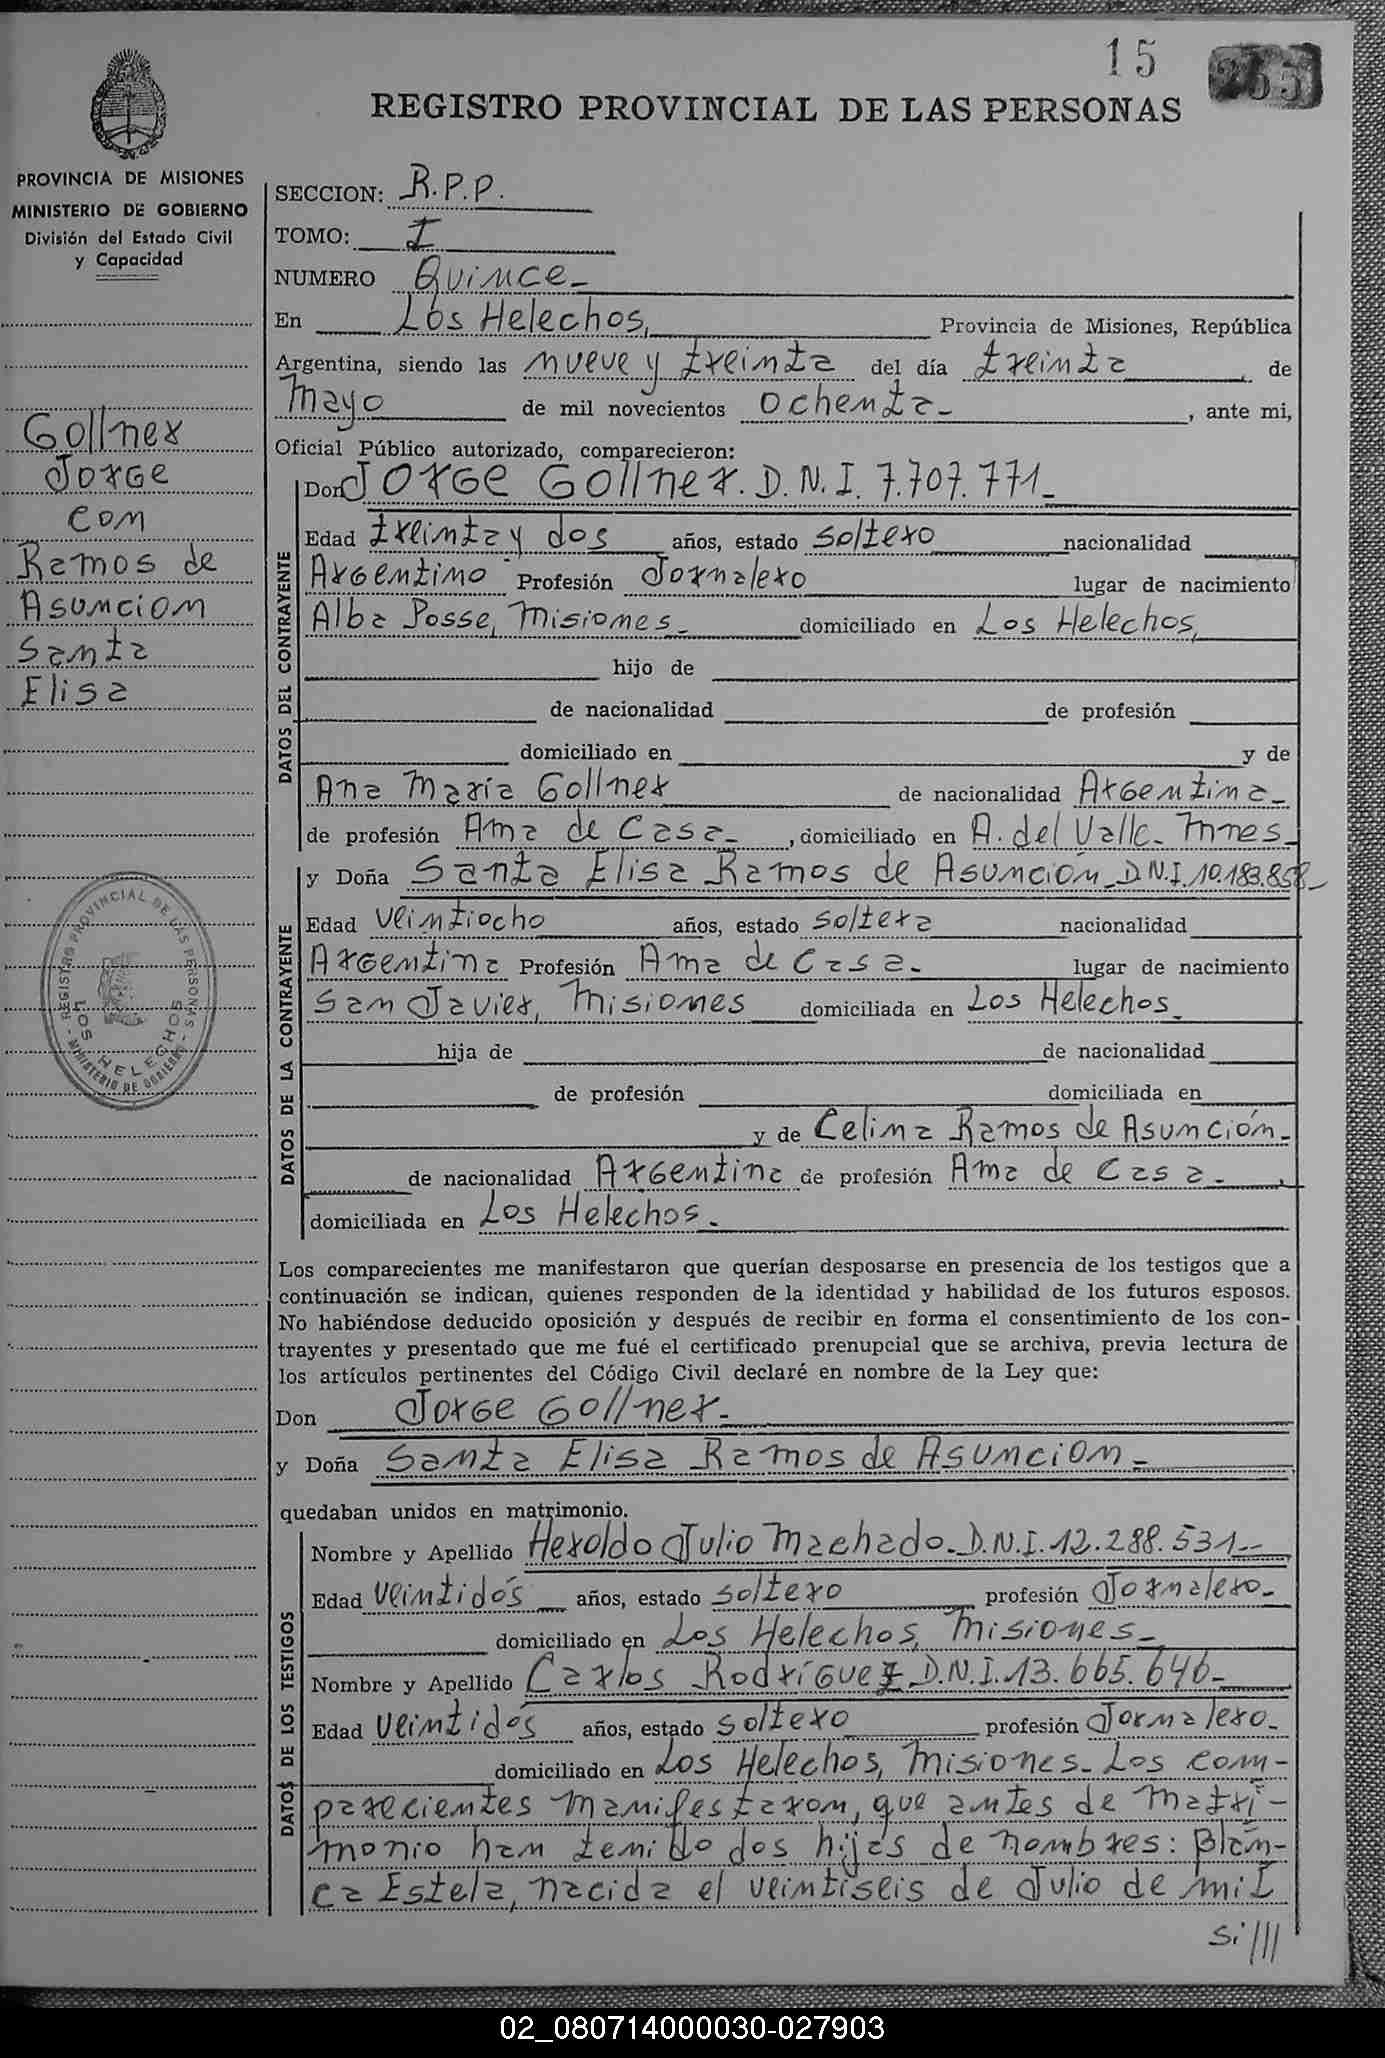 15
255
REGISTRO PROVINCIAL DE LAS PERSONAS
PROVINCIA DE MISIONES
MINISTERIO DE GOBIERNO
División del Estado Civil
y Capacidad
Gollner
Jorge
con
Ramos de
Asuncion
Santa
Elisa
REGISTRO PROVINCIAL DE LAS PERSONAS - MINISTERIO DE GOBIERNO -
LOS HELECHOS
SECCION: R.P.P.
TOMO: I
NUMERO Quince_
En Los Helechos, Provincia de Misiones, República
Argentina, siendo las nueve y treinta del día treinta, de
Mayo de mil novecientos Ochenta_, ante mi,
Oficial Público autorizado, comparecieron:
DATOS DEL CONTRAYENTE
Don Jorge Gollner. D.N.I. 7.707.771_
Edad treinta y dos años, estado soltero nacionalidad
Argentino Profesión Jornalero lugar de nacimiento
Alba Posse, Misiones_ domiciliado en Los Helechos,
hijo de
de nacionalidad de profesión
domiciliado en y de
Ana Maria Gollner de nacionalidad Argentina_
de profesión Ama de Casa_, domiciliado en A. del Valle_ Mnes_
DATOS DE LA CONTRAYENTE
y Doña Santa Elisa Ramos de Asunción_D.N.I.10.183.858_
Edad veintiocho años, estado soltera nacionalidad
Argentina Profesión Ama de Casa. lugar de nacimiento
San Javier, Misiones domiciliada en Los Helechos_
hija de de nacionalidad
de profesión domiciliada en
y de Celina Ramos de Asunción_
de nacionalidad Argentina de profesión Ama de Casa_,
domiciliada en Los Helechos.
Los comparecientes me manifestaron que querían desposarse en presencia de los testigos que a
continuación se indican, quienes responden de la identidad y habilidad de los futuros esposos.
No habiéndose deducido oposición y después de recibir en forma el consentimiento de los con-
trayentes y presentado que me fué el certificado prenupcial que se archiva, previa lectura de
los artículos pertinentes del Código Civil declaré en nombre de la Ley que:
Don Jorge Gollner_
y Doña Santa Elisa Ramos de Asuncion_
quedaban unidos en matrimonio.
DATOS DE LOS TESTIGOS
Nombre y Apellido Heroldo Julio Machado_D.N.I.12.288.531_
Edad veintidós años, estado soltero profesión Jornalero_
domiciliado en Los Helechos, Misiones_
Nombre y Apellido Carlos Rodríguez D.N.I.13.665.646_
Edad veintidós años, estado soltero profesión Jornalero_
domiciliado en Los Helechos, Misiones_ Los com-
parecientes manifestaron, que antes de matri-
monio han tenido dos hijas de nombres: Blan-
ca Estela, nacida el veintiseis de Julio de mil
Si///
02_080714000030-027903